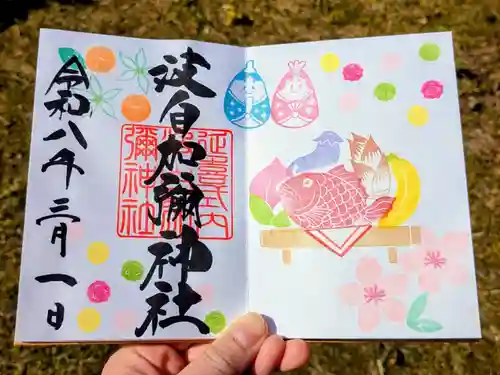 波自加彌神社
延喜式内
波自加
彌神社
令和八年三月一日